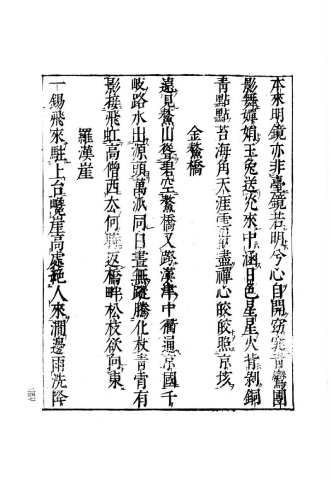 本來明鏡亦非臺鏡若明今心自開窈窕背鸞團
影舞嬋娟玉兔送光來中涵日色星星火背剝銅
青點點苔海角天涯雲盡禪心皎皎照京垓
金鰲橋
遠見鰲山聳碧空鰲橋又跨漢津中衝通京國千
岐路水出源頭萬派同白晝無蹤騰化杖青霄有
影接飛虹高僧西去何返橋畔松枝欲向東
羅漢崖
一錫飛來駐上台巉崖高處絕人來澗邊雨洗降
二四七